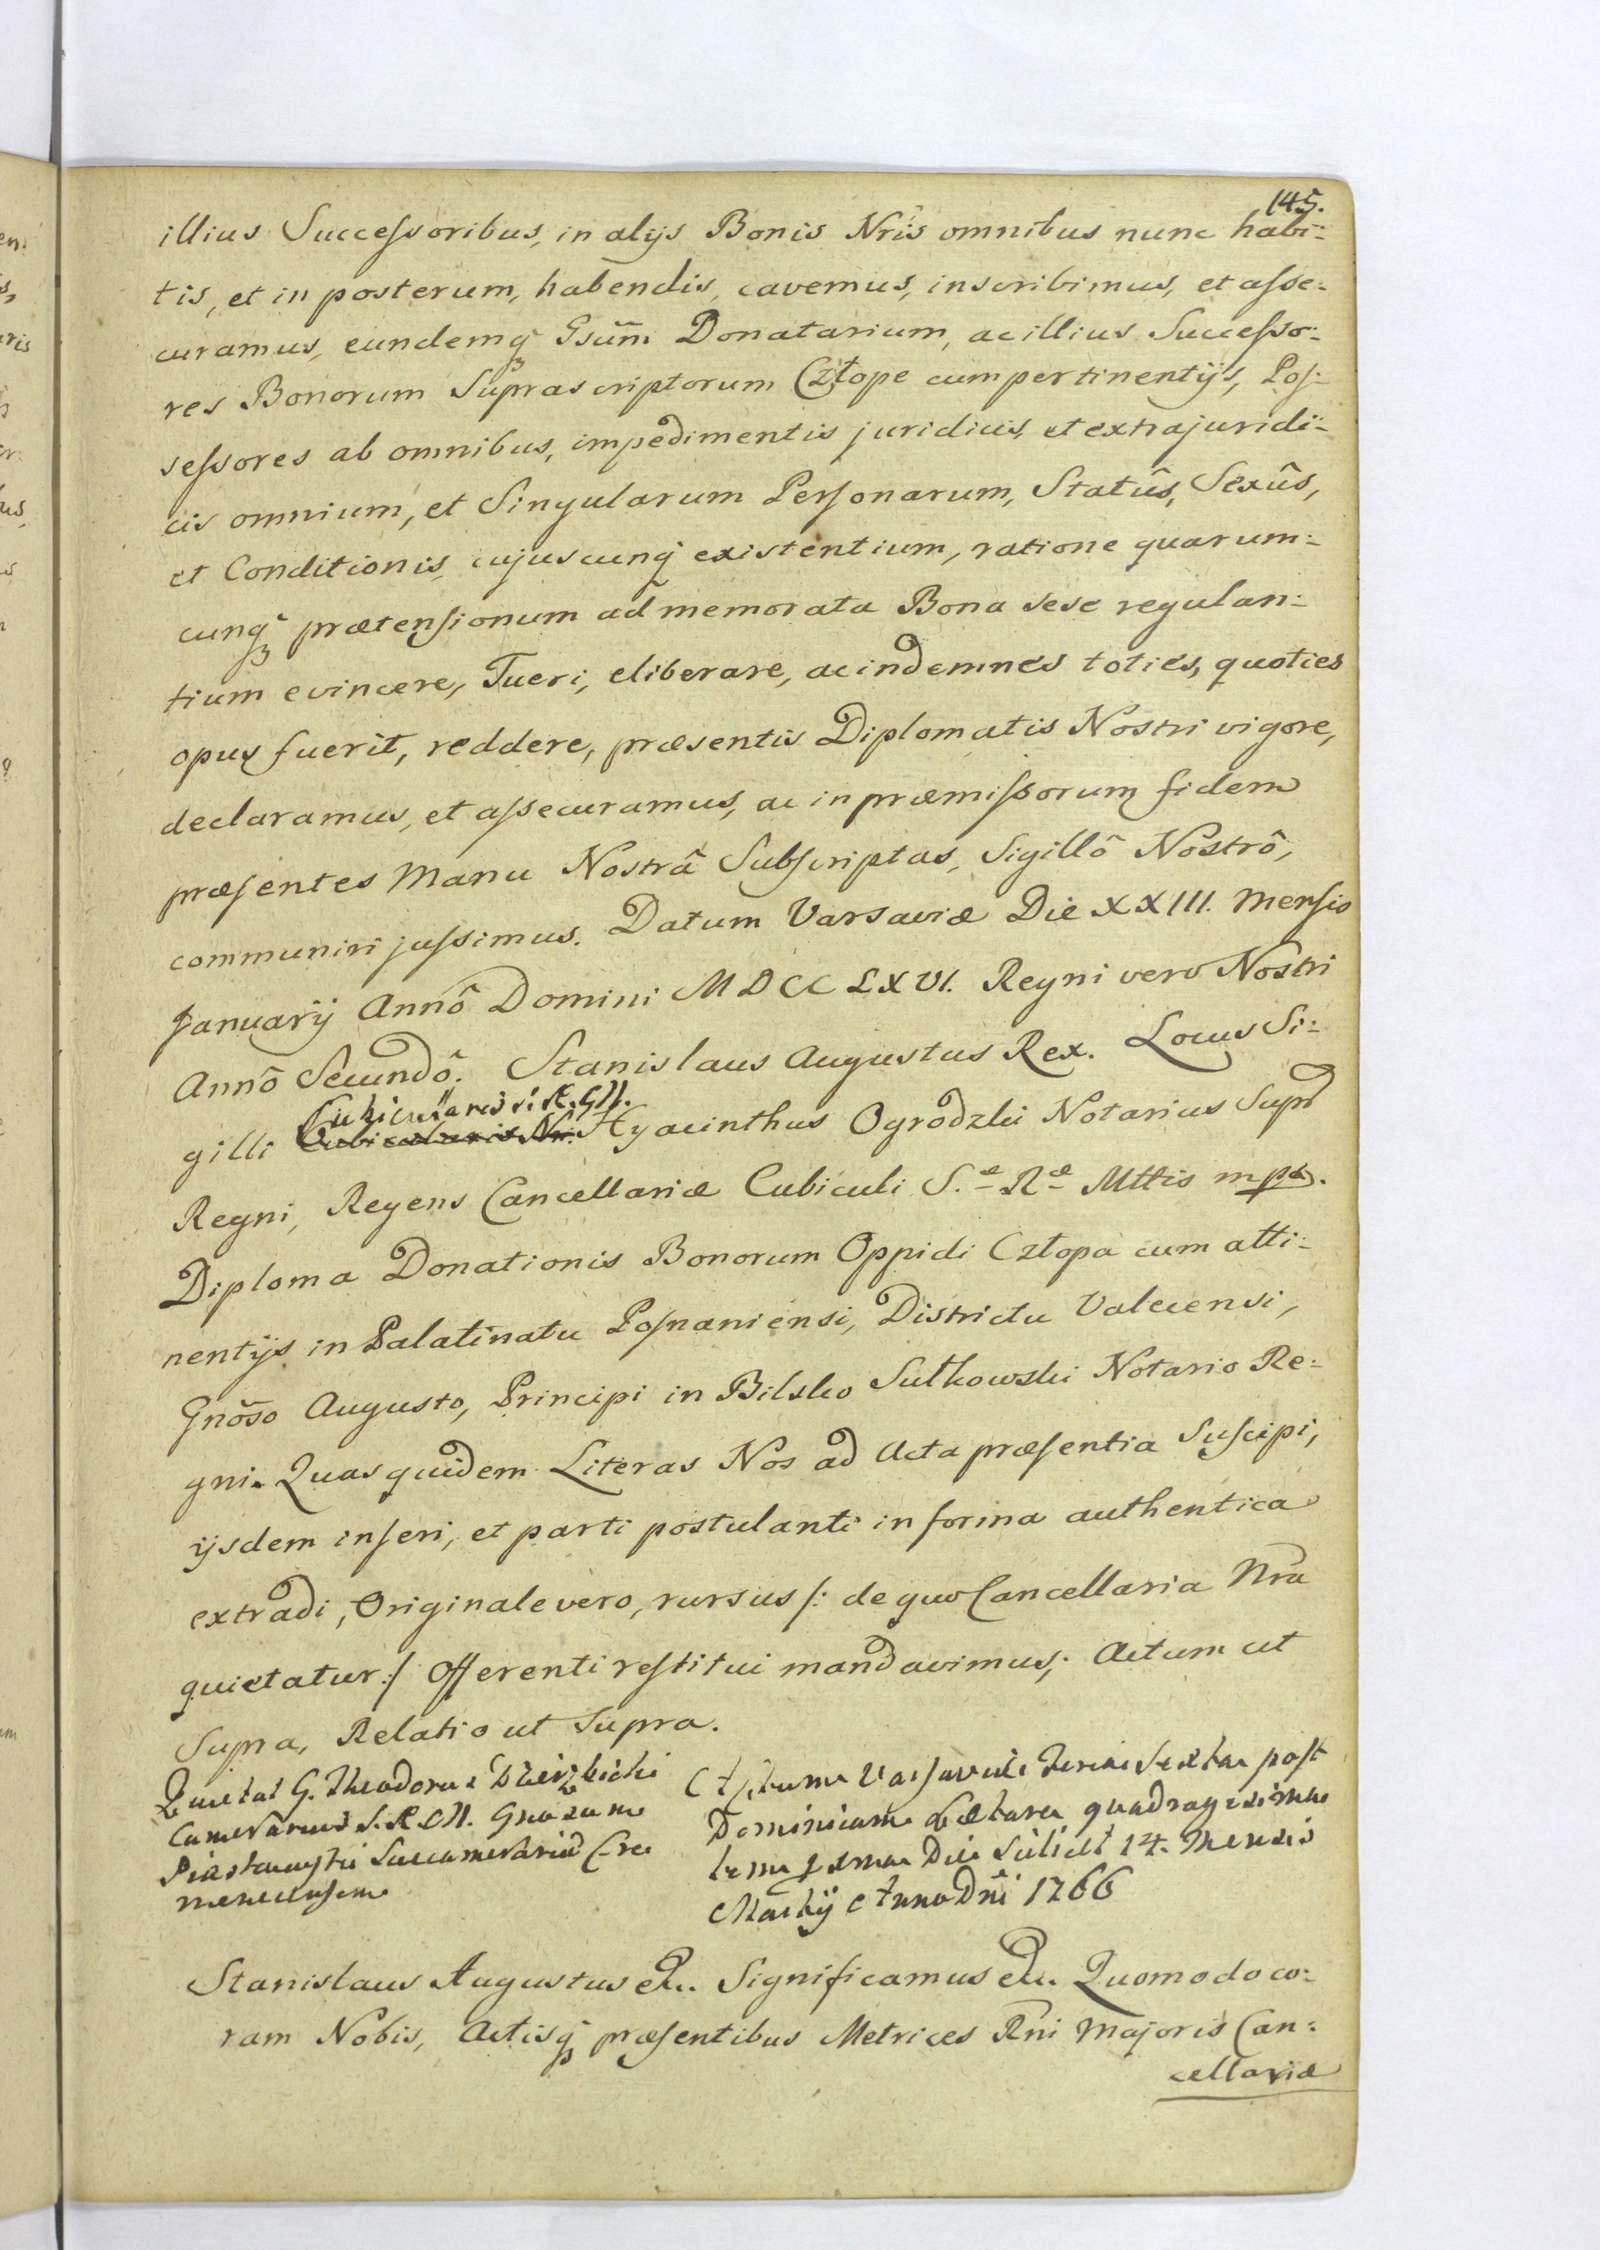 145.
illius Successoribus, in alijs Bonis Nris omnibus nunc habi:
tis, et in posterum, habendis, cavemus, inscribimus, et asse:
curamus, eundemq Gsum Donatarium, ac illius Successo:
res Bonorum Suprascriptorum Człope cum pertinentijs, Pos:
sessores ab omnibus, impedimentis juridicis, et extrajuridi:
cis omnium, et Singularum Personarum, Statûs, Sexûs,
et Conditionis cujuscunq existentium, ratione quarum:
cunq prætensionum ad memorata Bona sese regulan:
tium evincere, Tueri, eliberare, ac indemnes toties, quoties
opus fuerit, reddere, præsentis Diplomatis Nostri vigore,
declaramus, et assecuramus, ac in præmissorum fidem
præsentes Manu Nostrâ Subscriptas, Sigillô Nostrô,
communiri jussimus. Datum Varsaviæ Die XXIII. Mensis
Januarij Annô Domini MDCCLXVI. Regni vero Nostri
Annô Secundô. Stanislaus Augustus Rex. Locus Si:
gilli Cubicularis Hyacinthus Ogrodzki Notarius Supr
Regni, Regens Cancellariæ Cubiculi S.æ Ræ Mttis mpa.
Diploma Donationis Bonorum Oppidi Człopa cum atti:
nentijs in Palatinatu Posnaniensi, Districtu Valcensi,
Gnôso Augusto, Principi in Bilsko Sułkowski Notario Re:
gni. Quas quidem Literas Nos ad Acta præsentia Suscipi,
ijsdem inseri, et parti postulanti in forma authentica
extradi, Originale vero, rursus /: de quo Cancellaria Nra
quietatur :/ Offerenti restitui mandavimus; Actum ut
Supra, Relatio ut Supra.
Quietat G. Theodorus Dzierzbicki
Camerarius S.R.M. Gnosum
Succamerarid Cre
menecensem
Actum Varsaviæ Feria Sexta post
Dominicam Lætare quadragesima
lem xma Die Scilict 14. Mensis
Martij Anno Dni 1766
Stanislaus Augustus etc. Significamus etc. Quomodo co:
ram Nobis, Actisq præsentibus Metrices Rni Majoris Can:
cellariæ